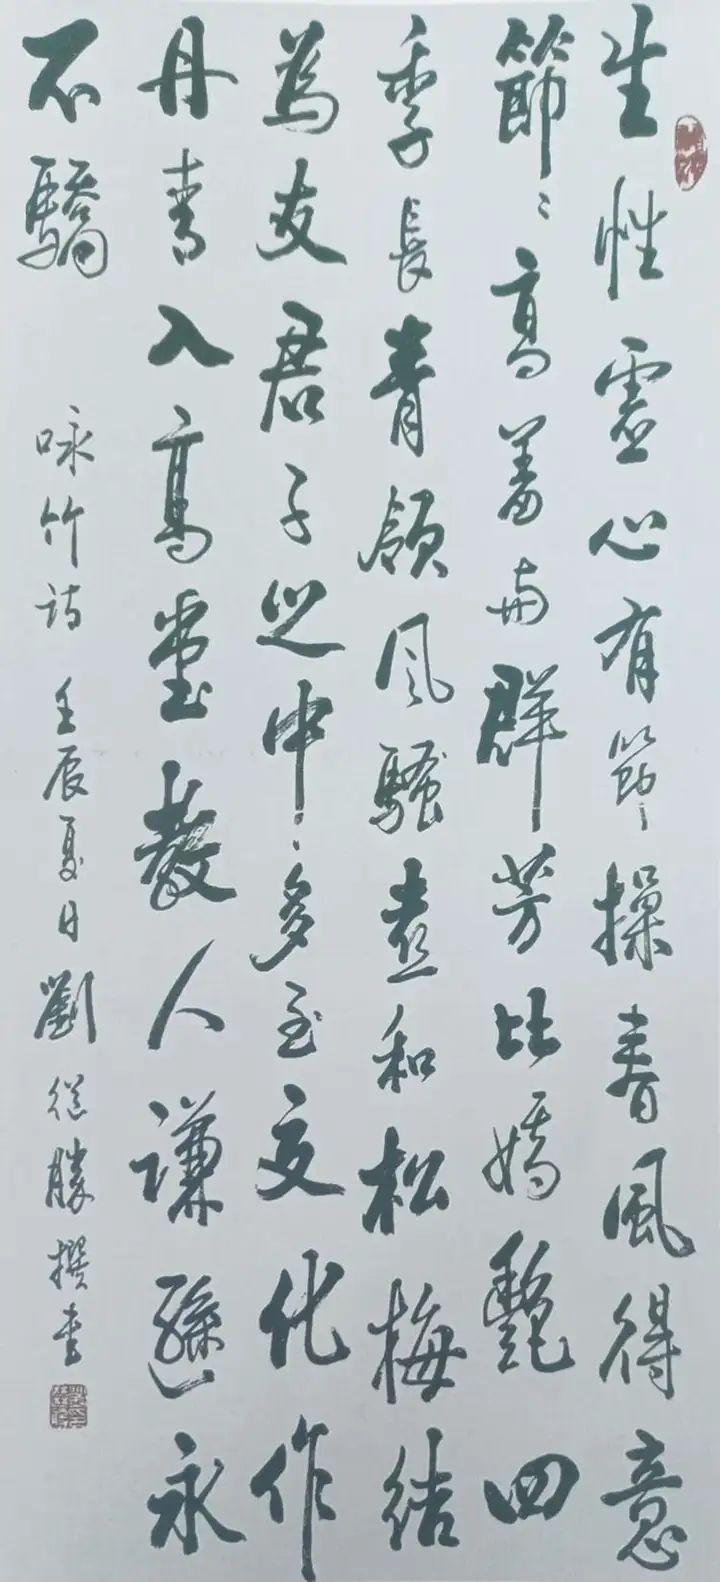 生性虛心有節操春風得意
節〻高羞与群芳比嬌艷四
季長青領風騷喜和松梅結
為友君子丛中多至交化作
丹青入高堂教人謙遜永
不驕
咏竹诗 壬辰夏日劉從勝撰書